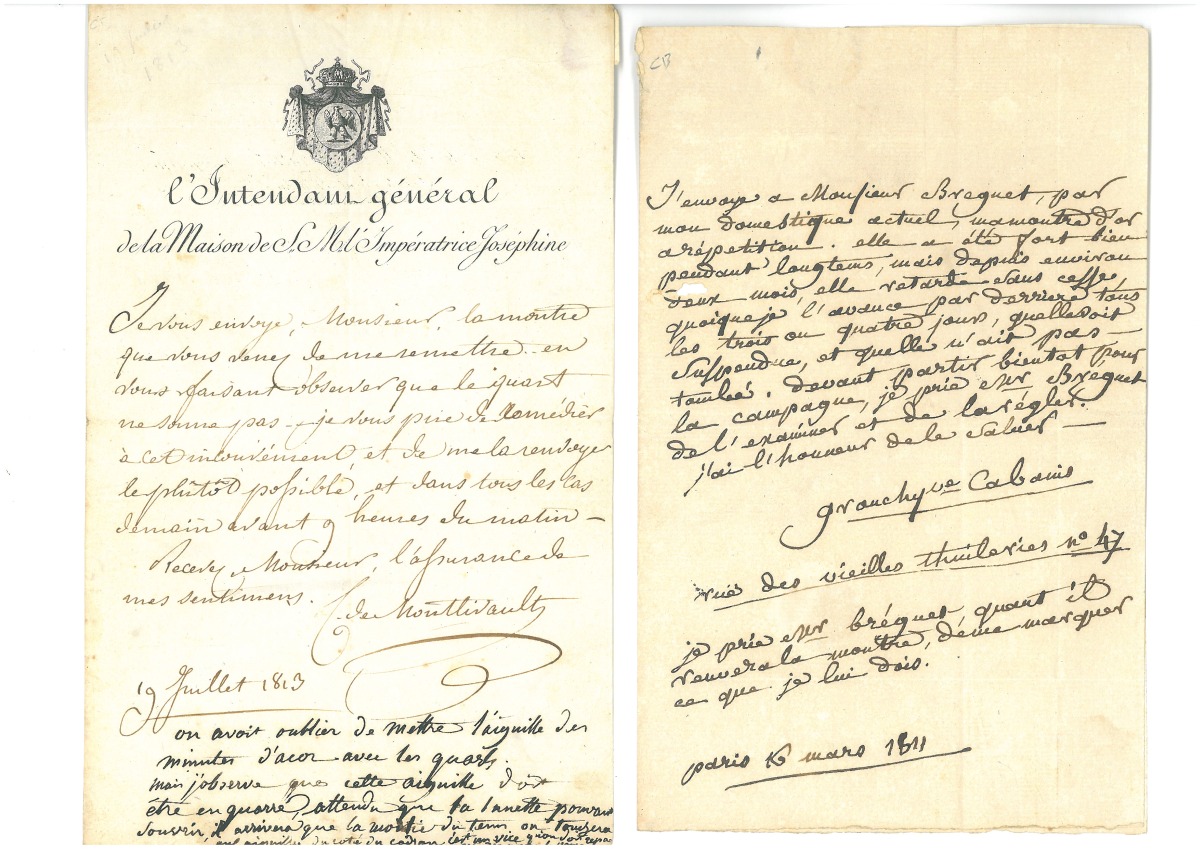 l'Intendant général
de la Maison de S. M. l'Impératrice Joséphine
Je vous envoye, Monsieur, la montre
que vous venez de me remettre en
vous faisant observer que le quart
ne sonne pas. je vous prie de Remédier
à cet inconvénient et de me la renvoyer
le plutôt possible, et dans tous les cas
demain avant 9 heures du matin —
Recevez, Monsieur, l'assurance de
mes sentimens.
de Montlivault
19 Juillet 1813
on avoit oublier de mettre l'aiguille des
minutes d'acor avec les quarts.
mais j'observe que cette aiguille doit
être en quarré, attendu que la lunette pouvant
s'ouvrir, il arrivera que la moitié du tems on
CB
J'envoye a Monsieur Breguet, par
mon domestique actuel, ma montre d'or
a répetition. elle a été fort bien
pendant longtems, mais depuis environ
deux mois, elle retarde sans cesse,
quoique je l'avance par derriere tous
les trois ou quatre jours, quelle soit
suspendue, et quelle n'ait pas —
tombé. devant partir bientot pour
la campagne, je prie Mr Breguet
de l'examiner et de la régler.
j'ai l'honneur de le saluer —
Grouchy ve Cabanis
rue des vieilles thuileries no 47
je prie Mr bréguet quant il
renvera la montre, de me marquer
ce que je lui dois.
paris 16 mars 1811